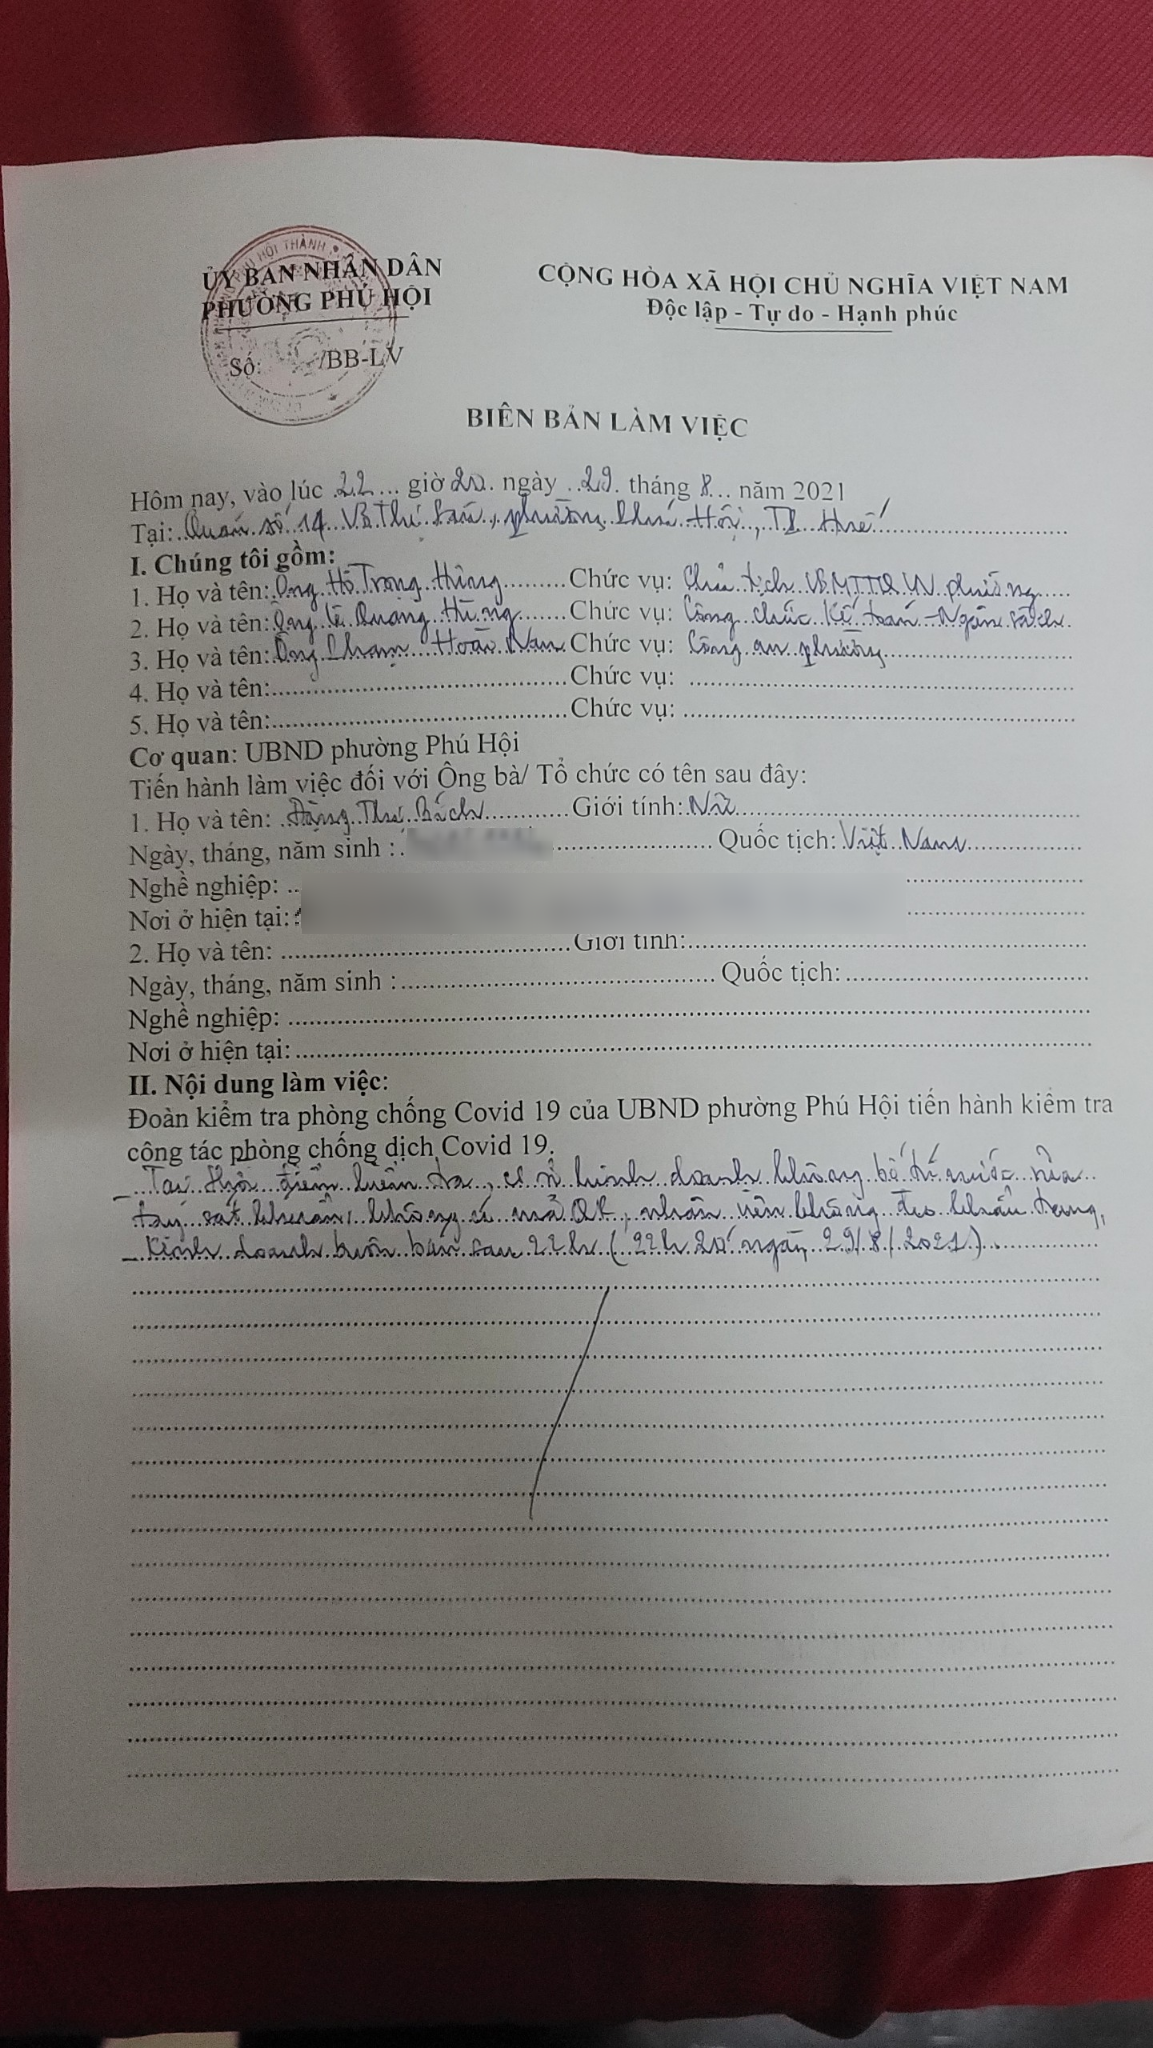 ỦY BAN NHÂN DÂN
PHƯỜNG PHÚ HỘI
Số: /BB-LV
CỘNG HÒA XÃ HỘI CHỦ NGHĨA VIỆT NAM
Độc lập - Tự do - Hạnh phúc
BIÊN BẢN LÀM VIỆC
Hôm nay, vào lúc 22 giờ 20 ngày 29 tháng 8 năm 2021
Tại: Quán số 14 Võ Thị Sáu, phường Phú Hội, TP Huế
I. Chúng tôi gồm:
1. Họ và tên: Ông Hồ Trọng Hùng Chức vụ: Chủ tịch UBMTTQVN phường
2. Họ và tên: Ông Lê Quang Hùng Chức vụ: Công chức Kế toán - Ngân sách
3. Họ và tên: Ông Phạm Hoài Nam Chức vụ: Công an phường
4. Họ và tên: Chức vụ:
5. Họ và tên: Chức vụ:
Cơ quan: UBND phường Phú Hội
Tiến hành làm việc đối với Ông bà/ Tổ chức có tên sau đây:
1. Họ và tên: Đặng Thư Bích Giới tính: Nữ
Ngày, tháng, năm sinh : Quốc tịch: Việt Nam
Nghề nghiệp:
Nơi ở hiện tại:
2. Họ và tên: Giới tính:
Ngày, tháng, năm sinh : Quốc tịch:
Nghề nghiệp:
Nơi ở hiện tại:
II. Nội dung làm việc:
Đoàn kiểm tra phòng chống Covid 19 của UBND phường Phú Hội tiến hành kiểm tra
công tác phòng chống dịch Covid 19.
- Tại thời điểm kiểm tra, cơ sở kinh doanh không bố trí nước rửa
tay sát khuẩn, không có mã QR, nhân viên không đeo khẩu trang,
- Kinh doanh buôn bán sau 22h (22h 20' ngày 29/8/2021).